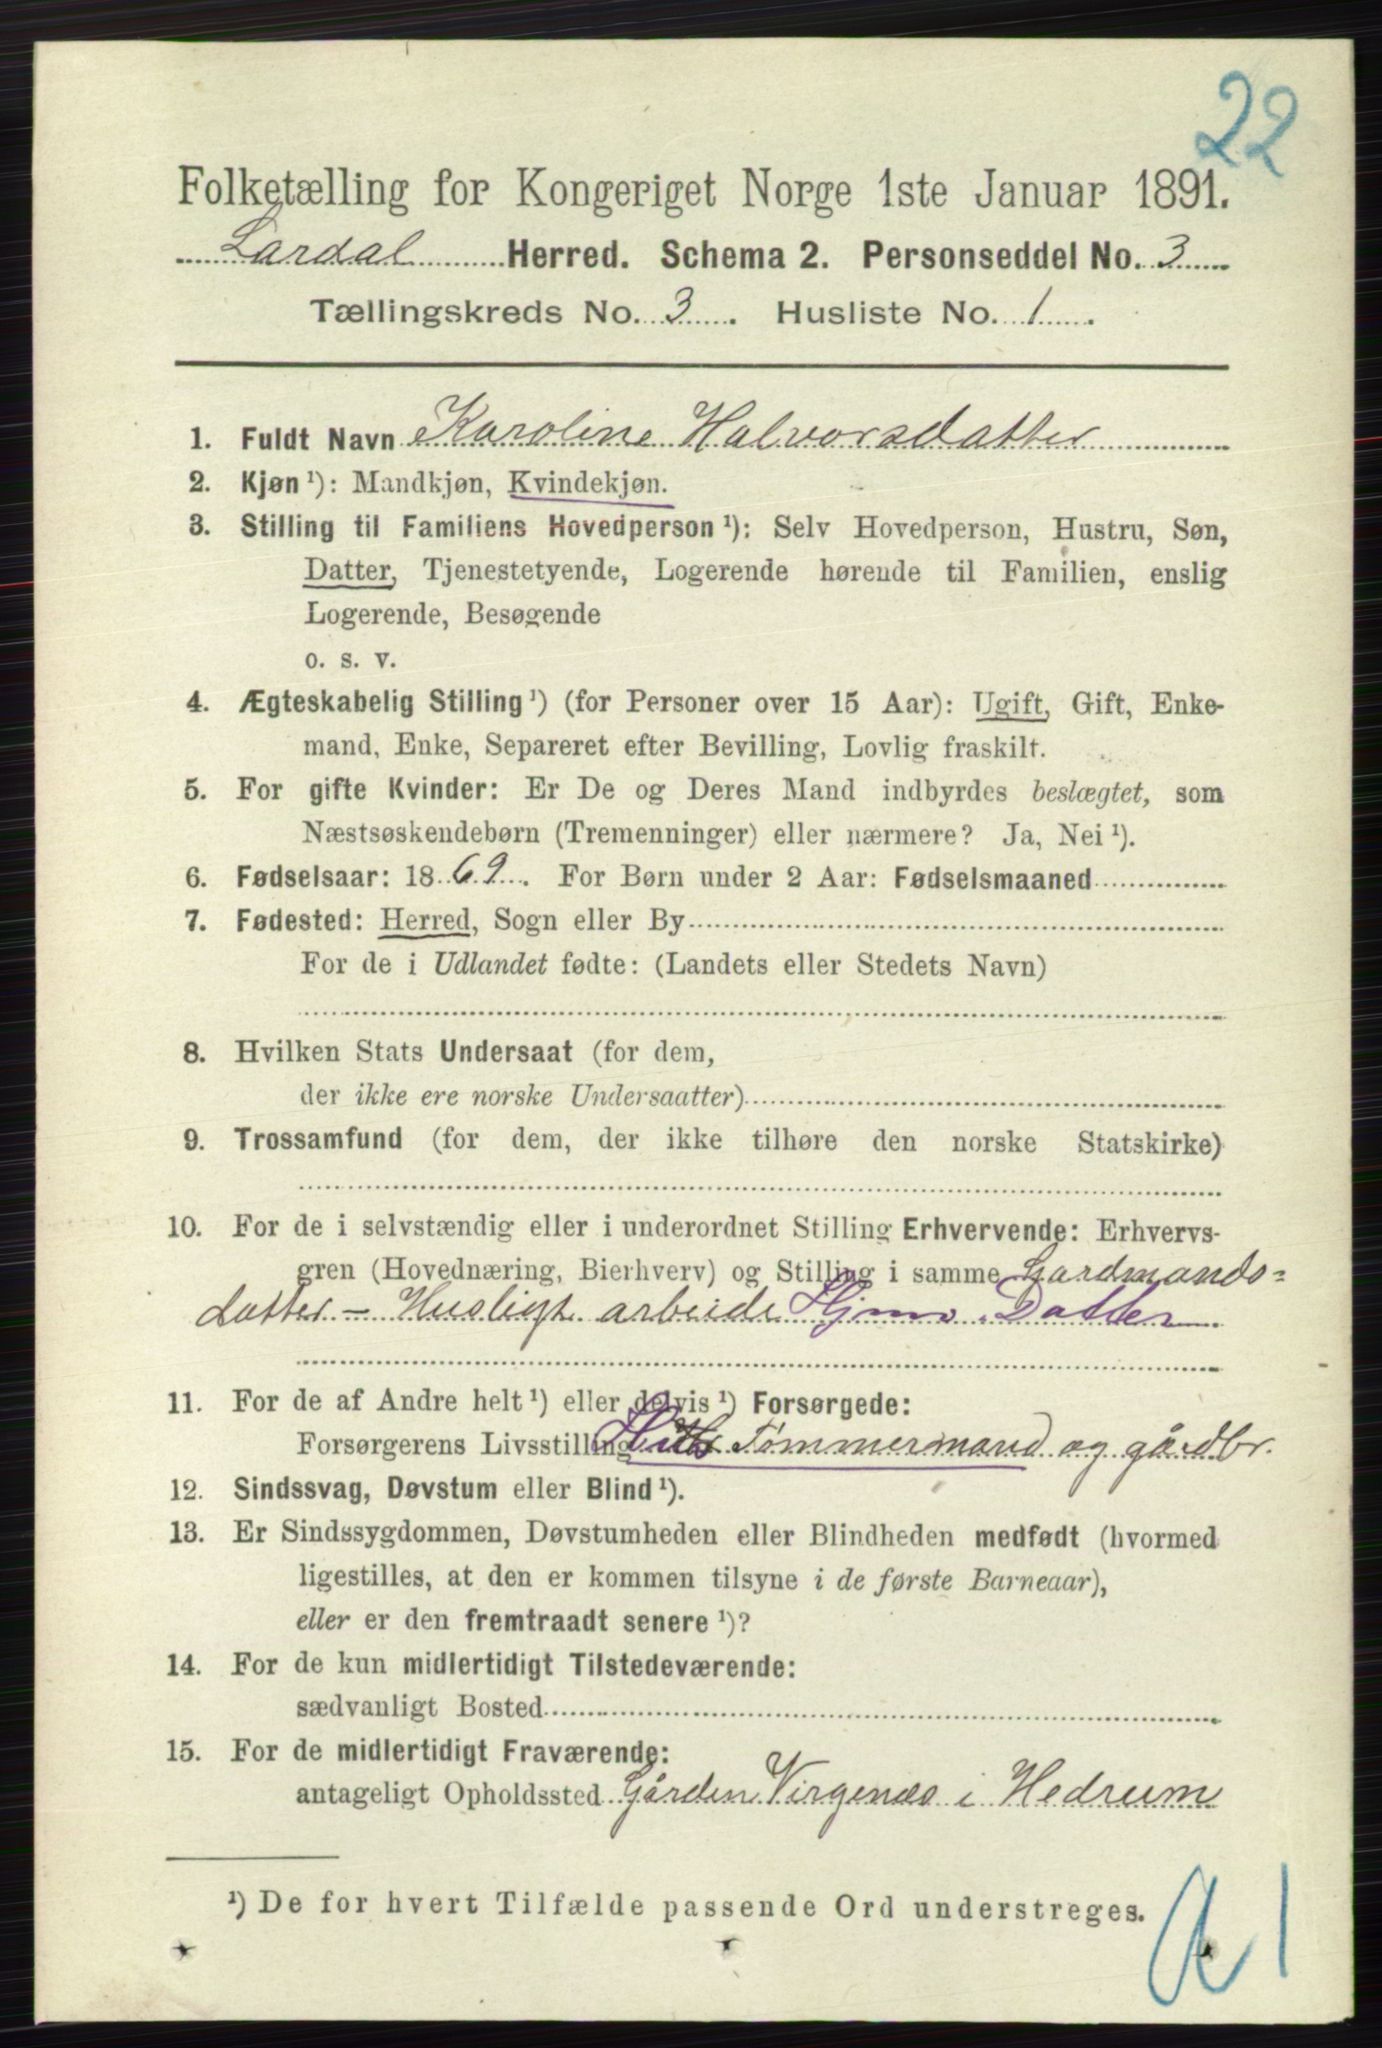 22
Folketælling for Kongeriget Norge 1ste Januar 1891.
Lardal Herred. Schema 2. Personseddel No. 3
Tællingskreds No. 3. Husliste No. 1.
1. Fuldt Navn Karoline Halvorsdatter
2. Kjøn ¹): Mandkjøn, Kvindekjøn.
3. Stilling til Familiens Hovedperson ¹): Selv Hovedperson, Hustru, Søn,
Datter, Tjenestetyende, Logerende hørende til Familien, enslig
Logerende, Besøgende
o. s. v.
4. Ægteskabelig Stilling ¹) (for Personer over 15 Aar): Ugift, Gift, Enke-
mand, Enke, Separeret efter Bevilling, Lovlig fraskilt.
5. For gifte Kvinder: Er De og Deres Mand indbyrdes beslægtet, som
Næstsøskendebørn (Tremenninger) eller nærmere? Ja, Nei ¹).
6. Fødselsaar: 1869. For Børn under 2 Aar: Fødselsmaaned
7. Fødested: Herred, Sogn eller By
For de i Udlandet fødte: (Landets eller Stedets Navn)
8. Hvilken Stats Undersaat (for dem,
der ikke ere norske Undersaatter)
9. Trossamfund (for dem, der ikke tilhøre den norske Statskirke)
10. For de i selvstændig eller i underordnet Stilling Erhvervende: Erhvervs-
gren (Hovednæring, Bierhverv) og Stilling i samme Gardmands-
datter - Husligt arbeide Hjmv. Datter
11. For de af Andre helt ¹) eller delvis ¹) Forsørgede:
Forsørgerens Livsstilling Tømmermand og gårdbr.
12. Sindssvag, Døvstum eller Blind ¹).
13. Er Sindssygdommen, Døvstumheden eller Blindheden medfødt (hvormed
ligestilles, at den er kommen tilsyne i de første Barneaar),
eller er den fremtraadt senere ¹)?
14. For de kun midlertidigt Tilstedeværende:
sædvanligt Bosted
15. For de midlertidigt Fraværende:
antageligt Opholdssted Gården Virgenæs i Hedrum
¹) De for hvert Tilfælde passende Ord understreges.